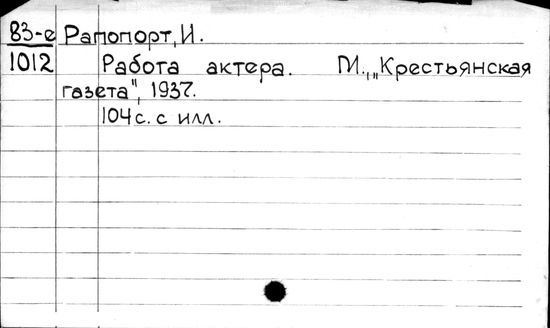 83-е Рапопорт, И.
1012 Работа актера. М., „Крестьянская
газета", 1937.
104 с. с илл.